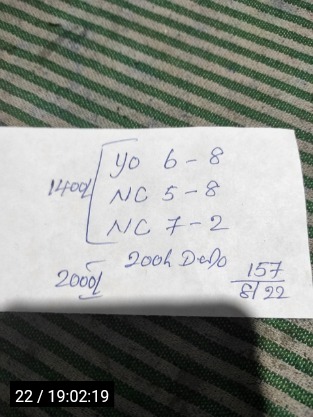 YO 6-8
1400/ NC 5-8
NC 7-2
200h DeDo
2000/
157
8/22
22 / 19:02:19